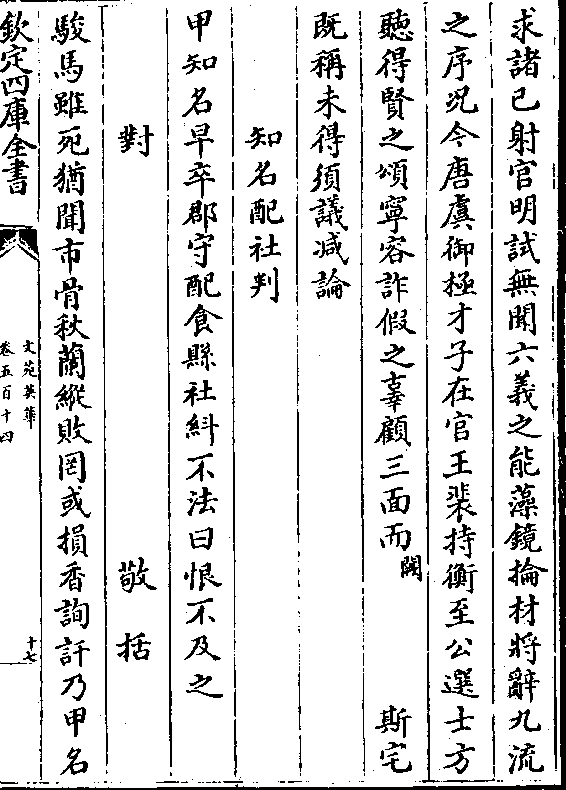 求諸已射官明試無聞六義之能藻鏡掄材將辭九流
之序况今唐虞御極才子在官王裴持衡至公選士方
聽得賢之頌寧容詐假之辜顧三面而闕　斯宅
既稱未得須議减論
知名配社判
甲知名早卒郡守配食縣社糾不法曰恨不及之
對　敬括
駿馬雖死猶聞市骨秋蘭縱敗罔或損香詢訐乃甲名
欽定四庫全書
文苑英華
卷五百十四
十七